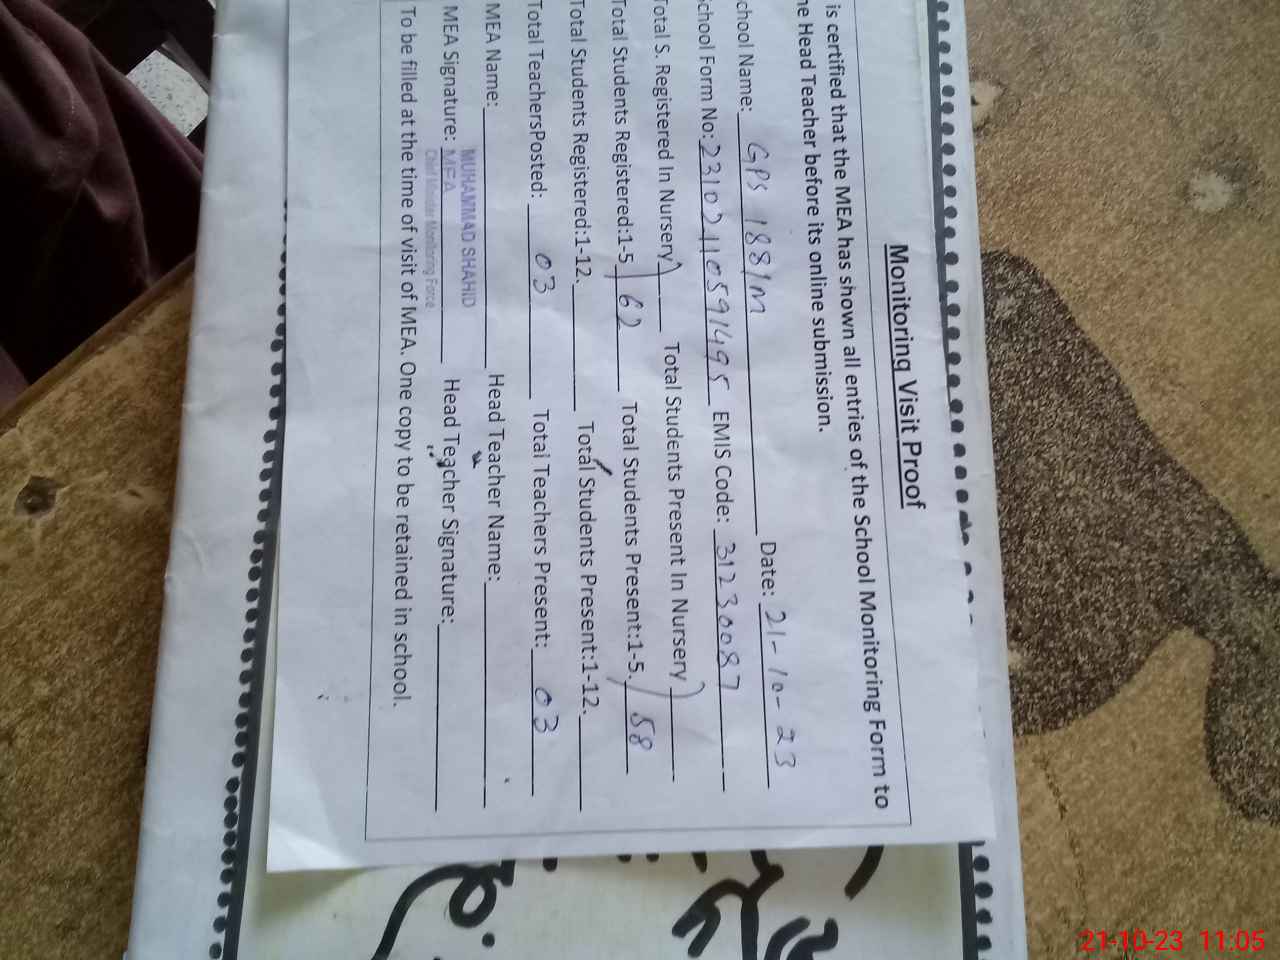 Monitoring Visit Proof
is certified that the MEA has shown all entries of the School Monitoring Form to
he Head Teacher before its online submission.
chool Name: GPS 188/M Date: 21-10-23
chool Form No: 23102110591495 EMIS Code: 31230087
Total S. Registered In Nursery Total Students Present In Nursery
Total Students Registered:1-5 62 Total Students Present:1-5. 58
Total Students Registered:1-12. Total Students Present:1-12.
Total TeachersPosted: 03 Total Teachers Present: 03
MEA Name: Head Teacher Name:
MUHAMMAD SHAHID
MEA Signature: MEA Head Teacher Signature:
Chief Minister Monitoring Force
To be filled at the time of visit of MEA. One copy to be retained in school.
21-10-23 11:05